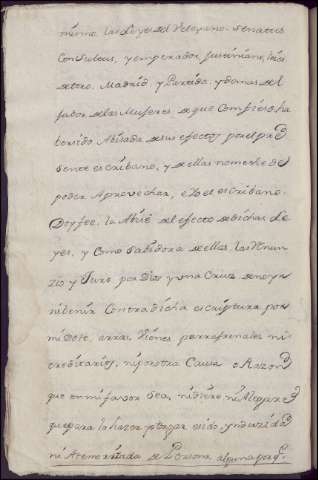 mismo, las Leyes del Veleyano, Senatus
Consultus, y emperador Justiniano, leies
de toro, Madrid y Partida, y demas del
fabor de las Mujeres, de que Confieso ha
ber sido Abisada de sus efectos por el pre
sente escribano, y de ellas no me he de
poder Aprovechar, e Yo el escribano
Doy fee, la Abisé del efecto de dichas Le
yes, y Como Sabidora de ellas, las renun
zio y Juro, por Dios y una Cruz de no yr
ni benir Contra dicha escriptura por
mi Dote, arras, Vienes parrafrenales ni
ereditarios, ni por otra Causa o Razon
que en mi fabor sea, ni diré ni Alegaré
que para la hazer y otorgar e sido ynduzida
ni Atemorizada de Persona alguna, pq.e